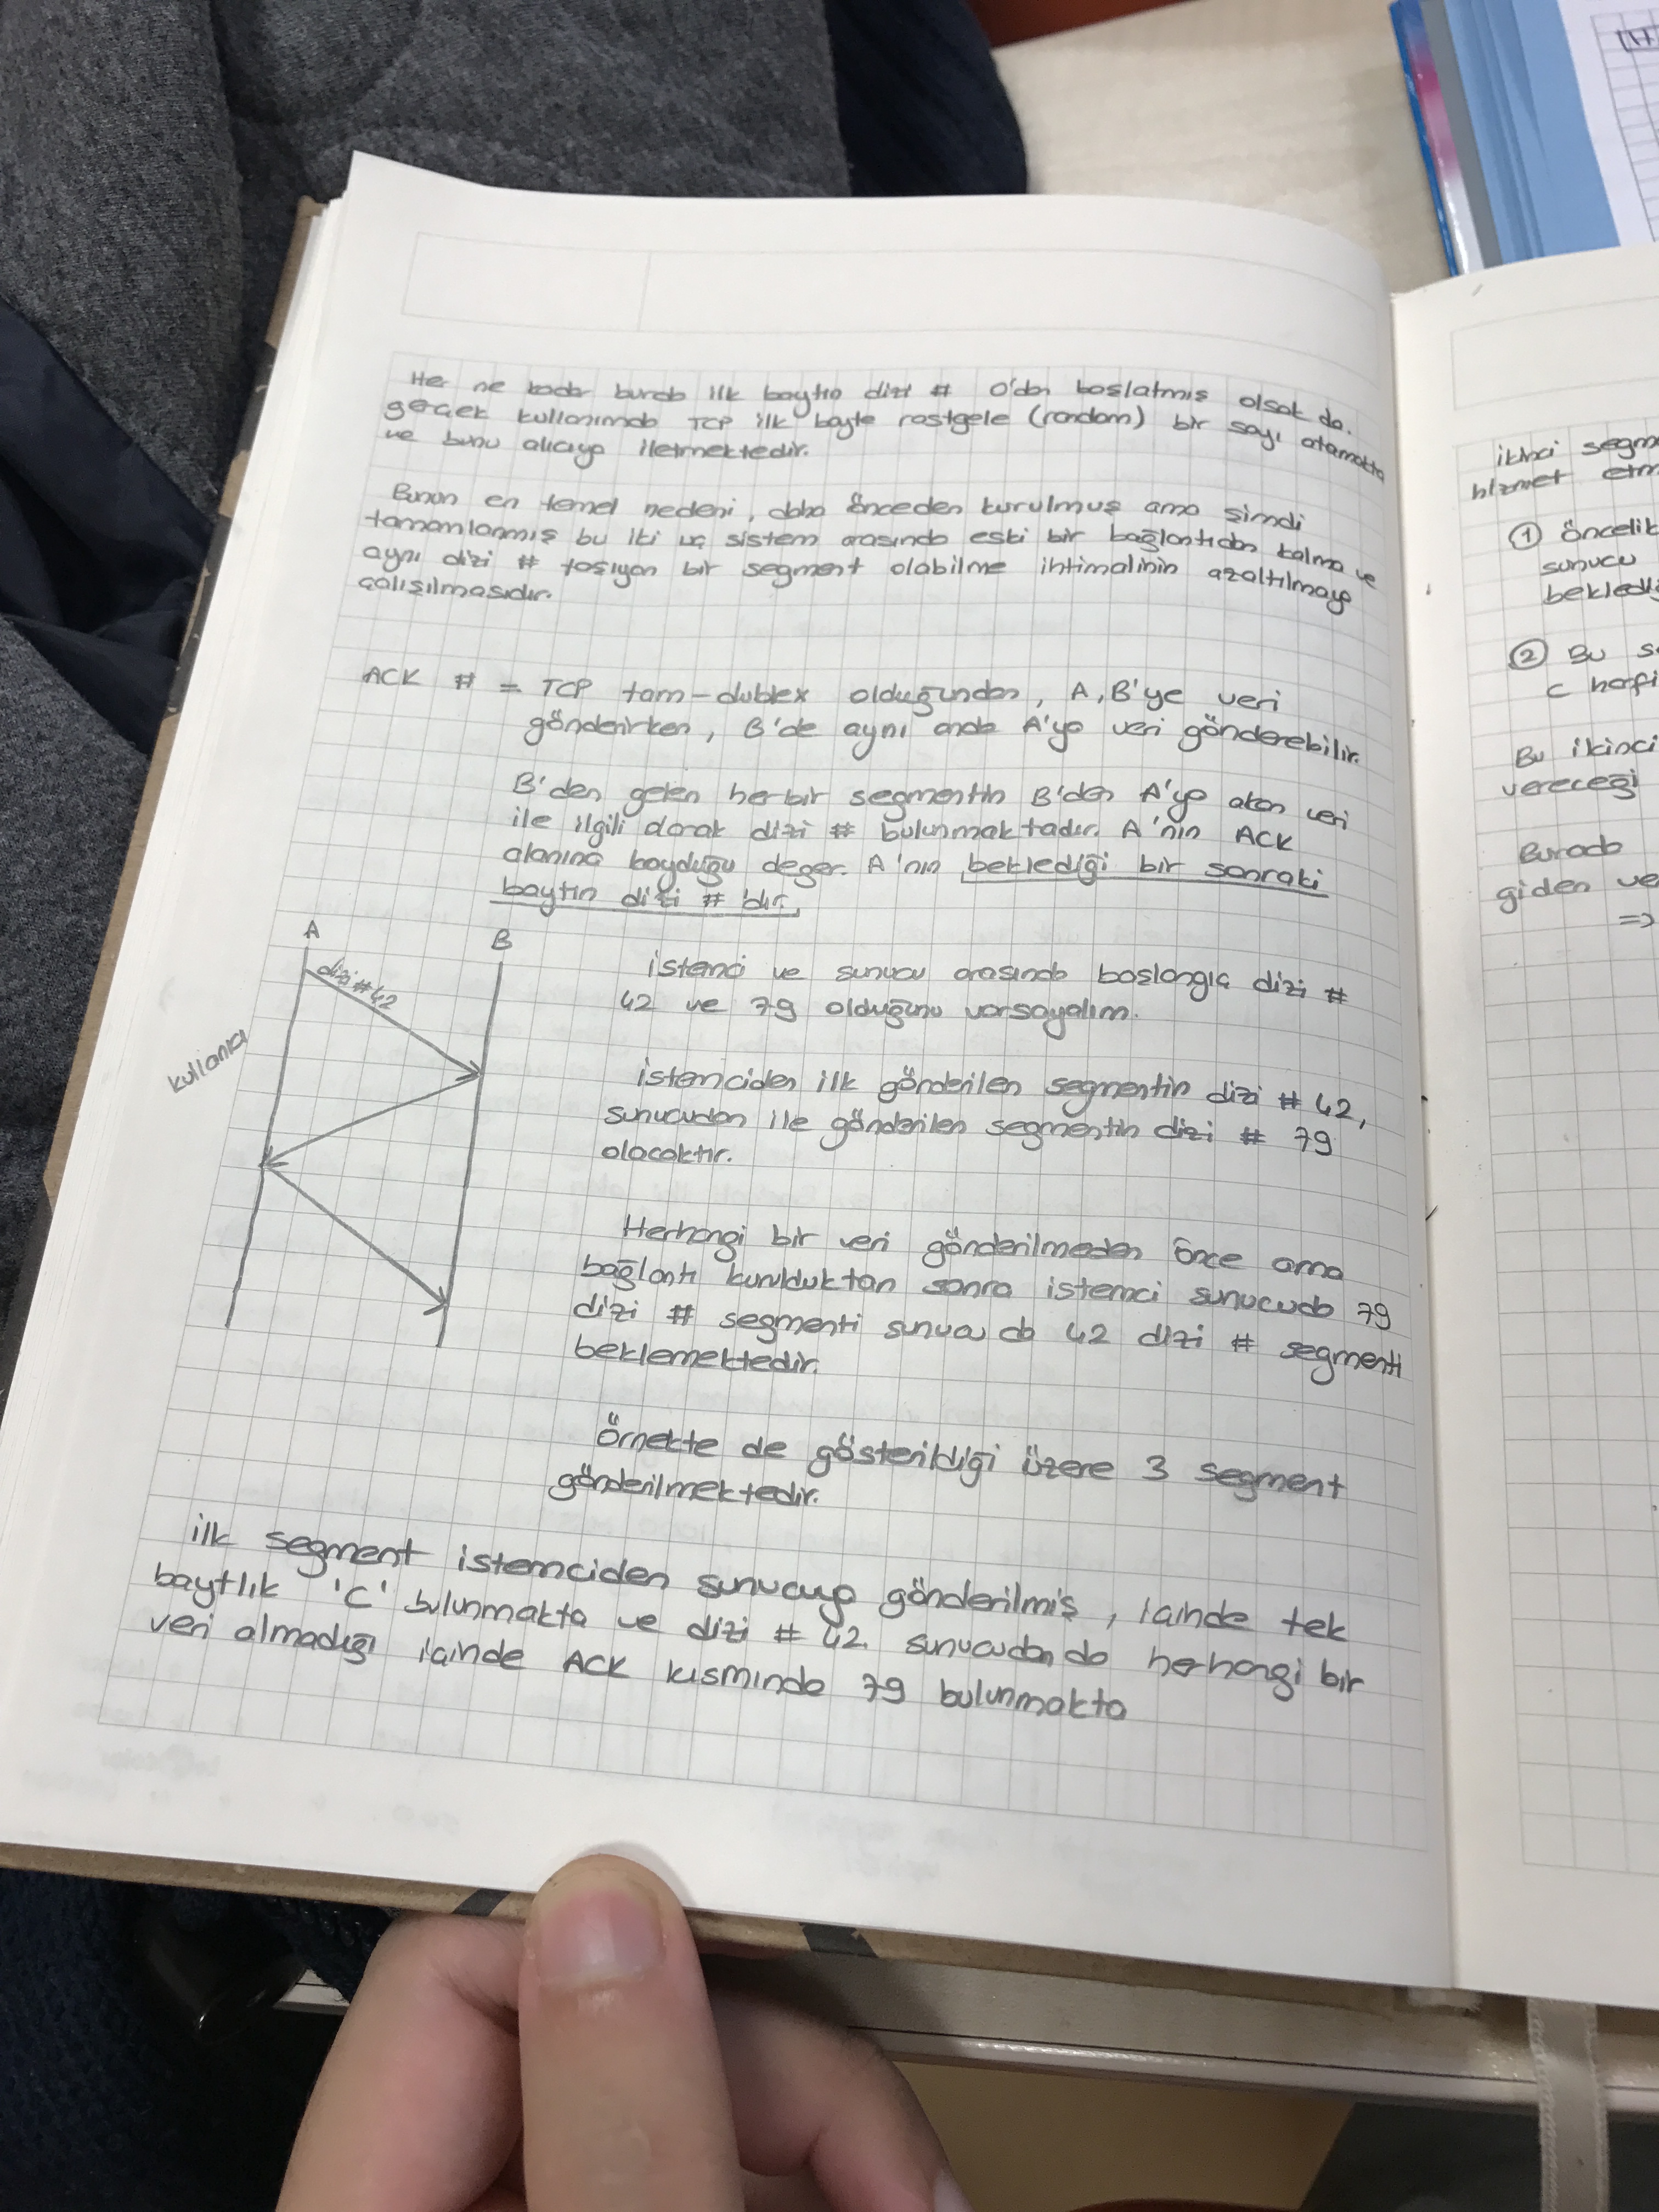 Her ne kadar burda ilk baytın dizi # 0'dan başlatmış olsak da.
gerçek kullanımda TCP ilk bayte rastgele (random) bir sayı atamakta
ve bunu alıcıya iletmektedir.
Bunun en temel nedeni, daha önceden kurulmuş ama şimdi
tamamlanmış bu iki uç sistem arasında eski bir bağlantıdan kalma ve
aynı dizi # taşıyan bir segment olabilme ihtimalinin azaltılmaya
çalışılmasıdır.
ACK # = TCP tam-dublex olduğundan, A, B'ye veri
gönderirken, B'de aynı anda A'ya veri gönderebilir.
B'den gelen herbir segmentin B'den A'ya akan veri
ile ilgili olarak dizi # bulunmaktadır. A'nın ACK
alanına koyduğu değer. A'nın beklediği bir sonraki
baytın dizi # 'dır.
A
B
dizi #42
kullanıcı
istenci ve sunucu arasında başlangıç dizi #
42 ve 79 olduğunu varsayalım.
istemciden ilk gönderilen segmentin dizi # 42,
sunucudan ile gönderilen segmentin dizi # 79
olacaktır.
Herhangi bir veri gönderilmeden önce ama
bağlantı kurulduktan sonra istemci sunucuda 79
dizi # segmenti sunucu da 42 dizi # segmenti
beklemektedir.
Örnekte de gösterildiği üzere 3 segment
gönderilmektedir.
ilk segment istemciden sunucuya gönderilmiş, içinde tek
baytlık 'C' bulunmakta ve dizi # 42. sunucudan da herhangi bir
veri almadığı içinde ACK kısmında 79 bulunmakta
ikinci
hizmet
① öncelik
sunucu
② Bu
C
Bu ikinci
vereceği
Burada
giden
=>